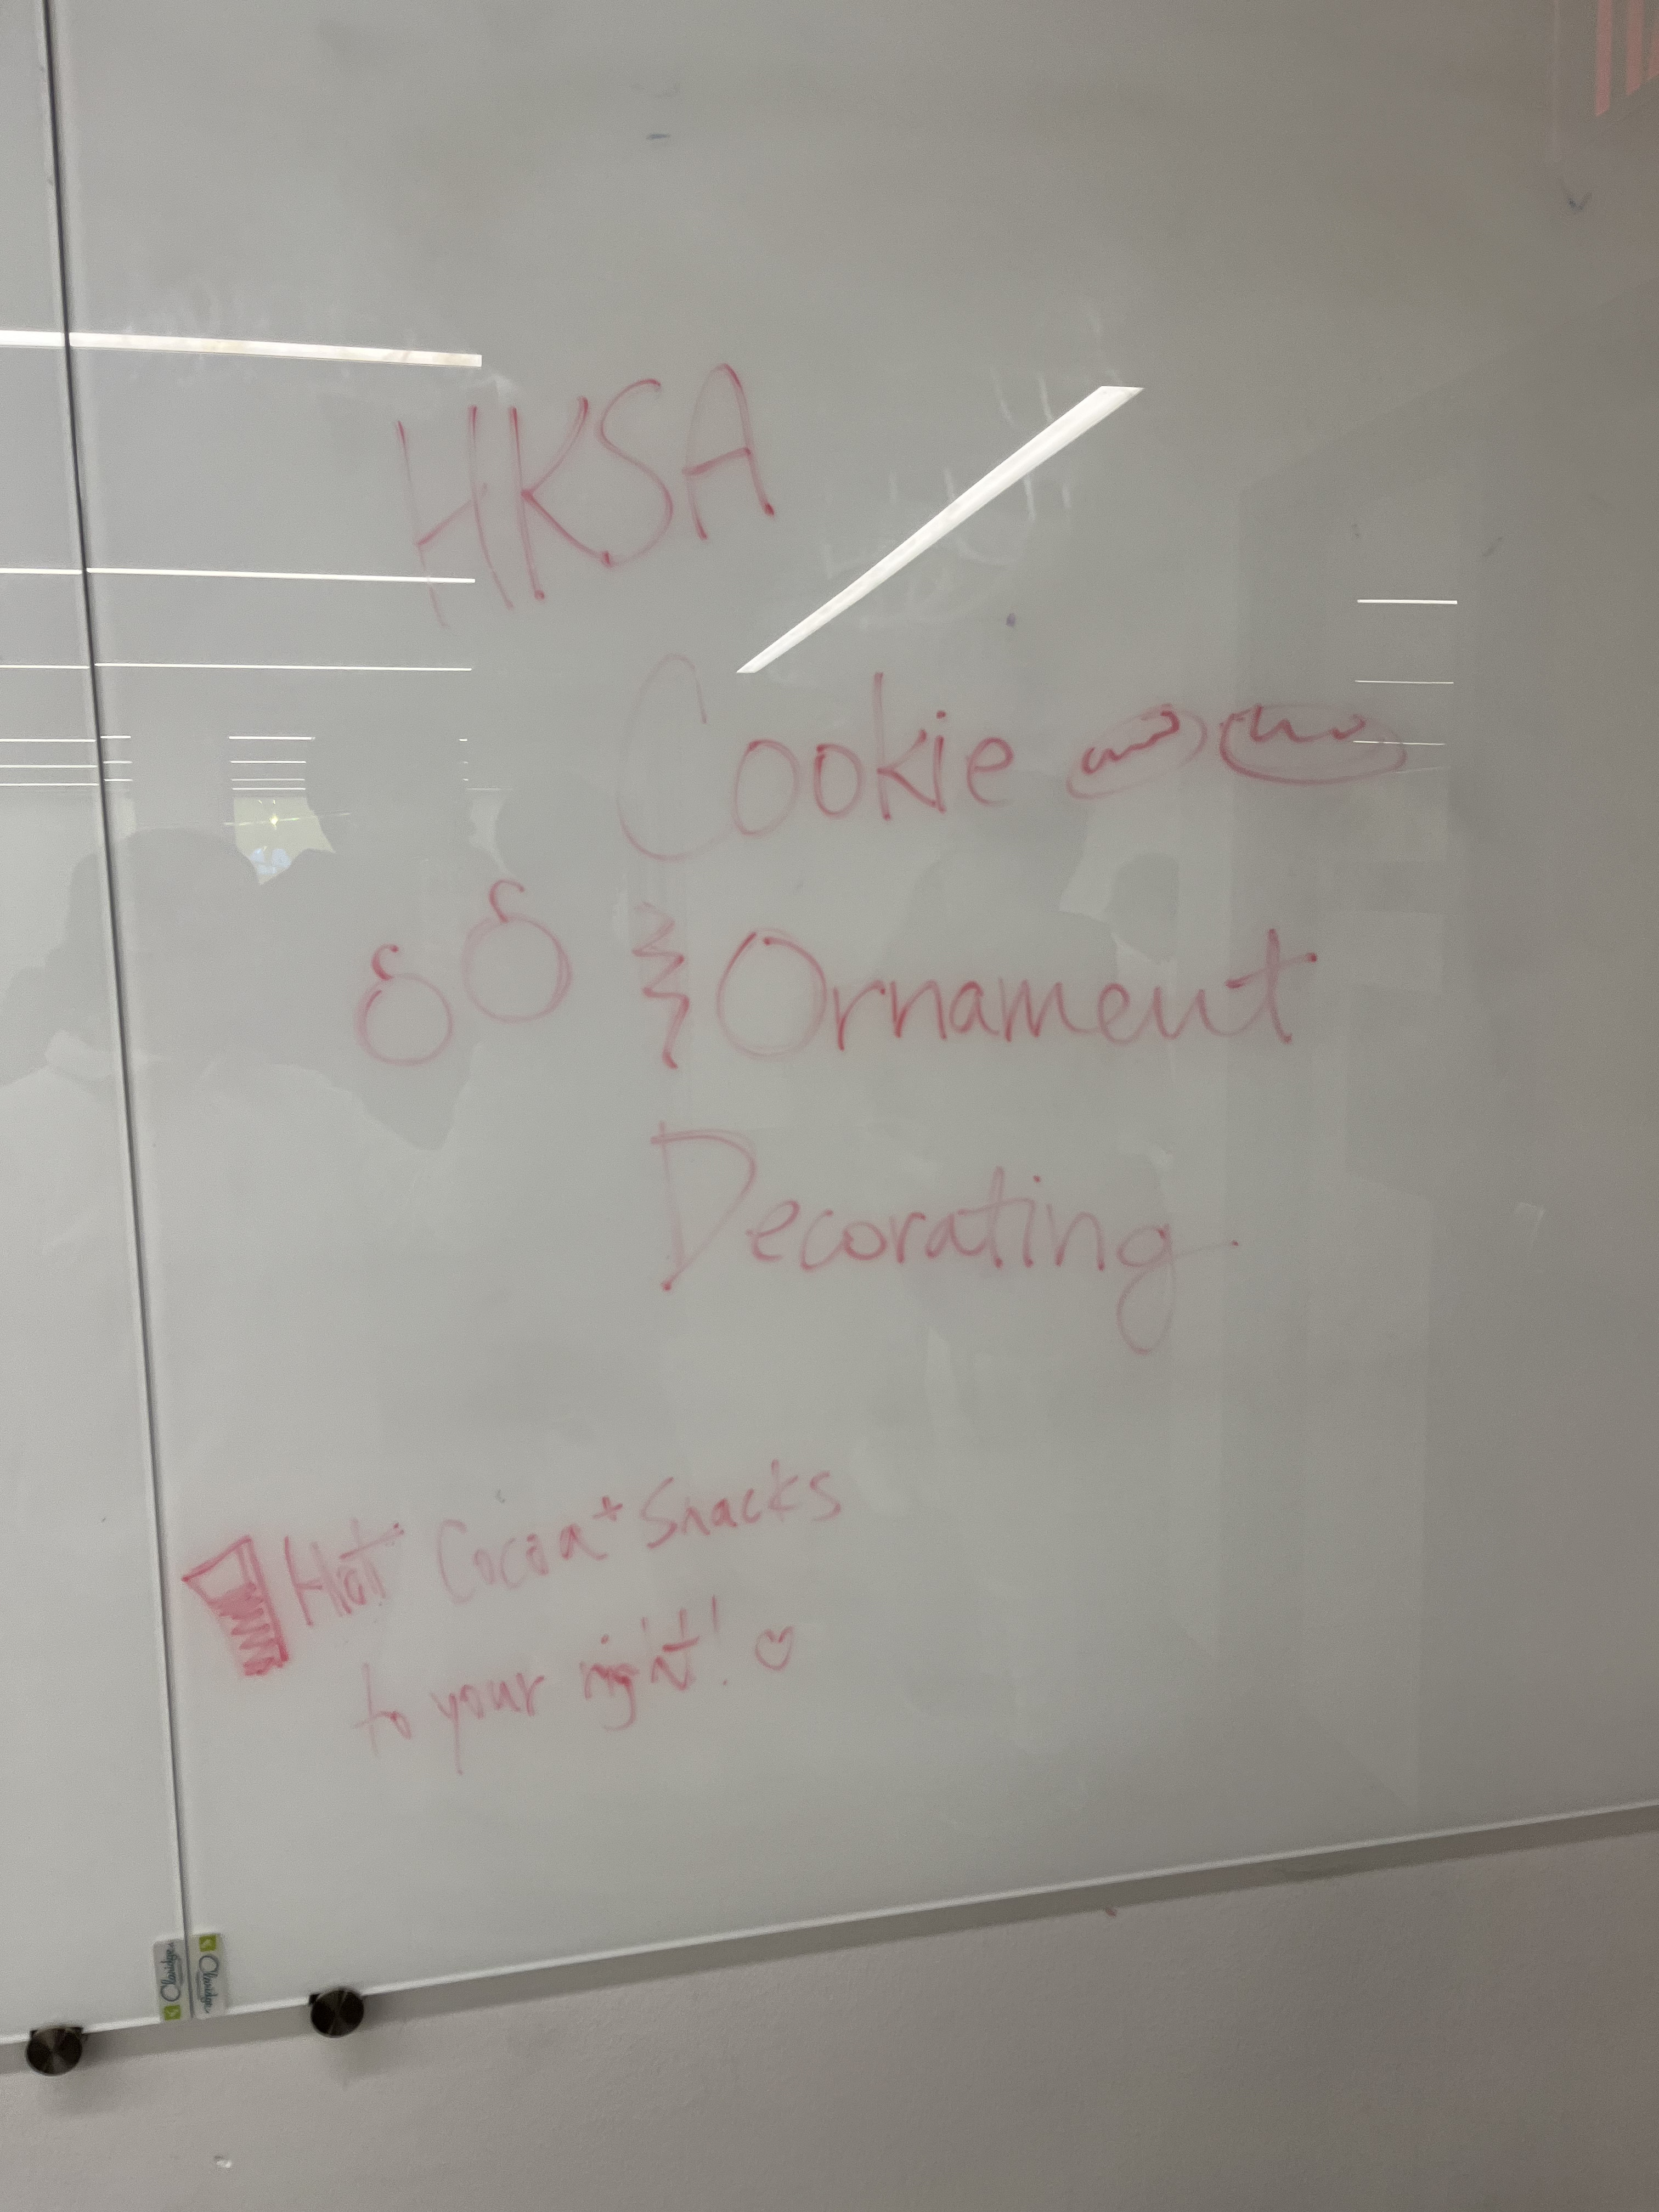 HKSA
Cookie
& Ornament
Decorating
Hot Cocoa + Snacks
to your right! ♡
Claridge
Claridge